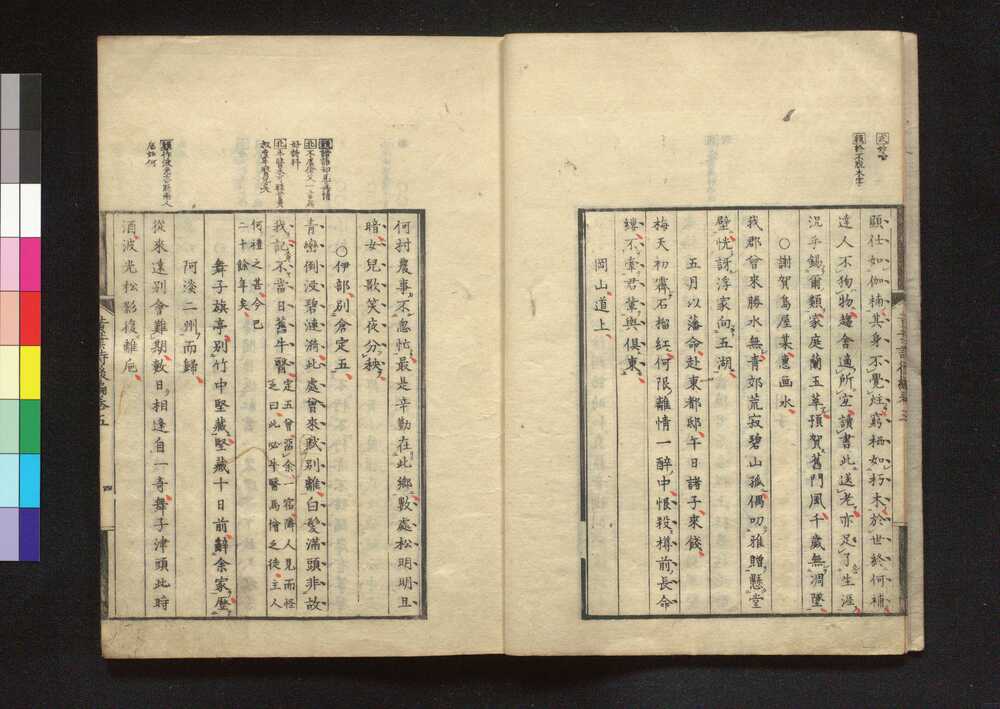 顯仕如伽楠其身不覺炷窮栖如朽木於世終何補
達人不狗物趨舍適所宜讀書此送老亦足了生涯
況乎錫爾類家庭蘭玉萃預賀舊門風千歲無凋墜
〇謝賀島屋某惠画水
我郡曾來勝水無青郊荒寂碧山孤偶叨雅贈懸堂
壁恍訝浮家向五湖
五月以藩命赴東都邸午日諸子來餞
梅天初霽石榴紅何限離情一醉中恨殺樽前長命
縷不牽君輩與俱東
岡山道上
何村農事不怱忙最是辛勤在此鄉數處松明明且
暗女兒歌笑夜分秧
〇伊部別倉定五
青巒倒沒碧漣漪此處曾來賦別離白髮滿頭非故
我記不當日舊牛醫
定五曾留余一宿隣人見而怪
之曰此必牛醫馬儈之徒主人
何禮之甚今已
二十餘年矣
舞子旗亭別竹中堅藏堅藏十日前鮮余家歷
阿淡二州而歸
從來遠別會難期數日相逢自一奇舞子津頭此時
酒波光松影復離卮
四